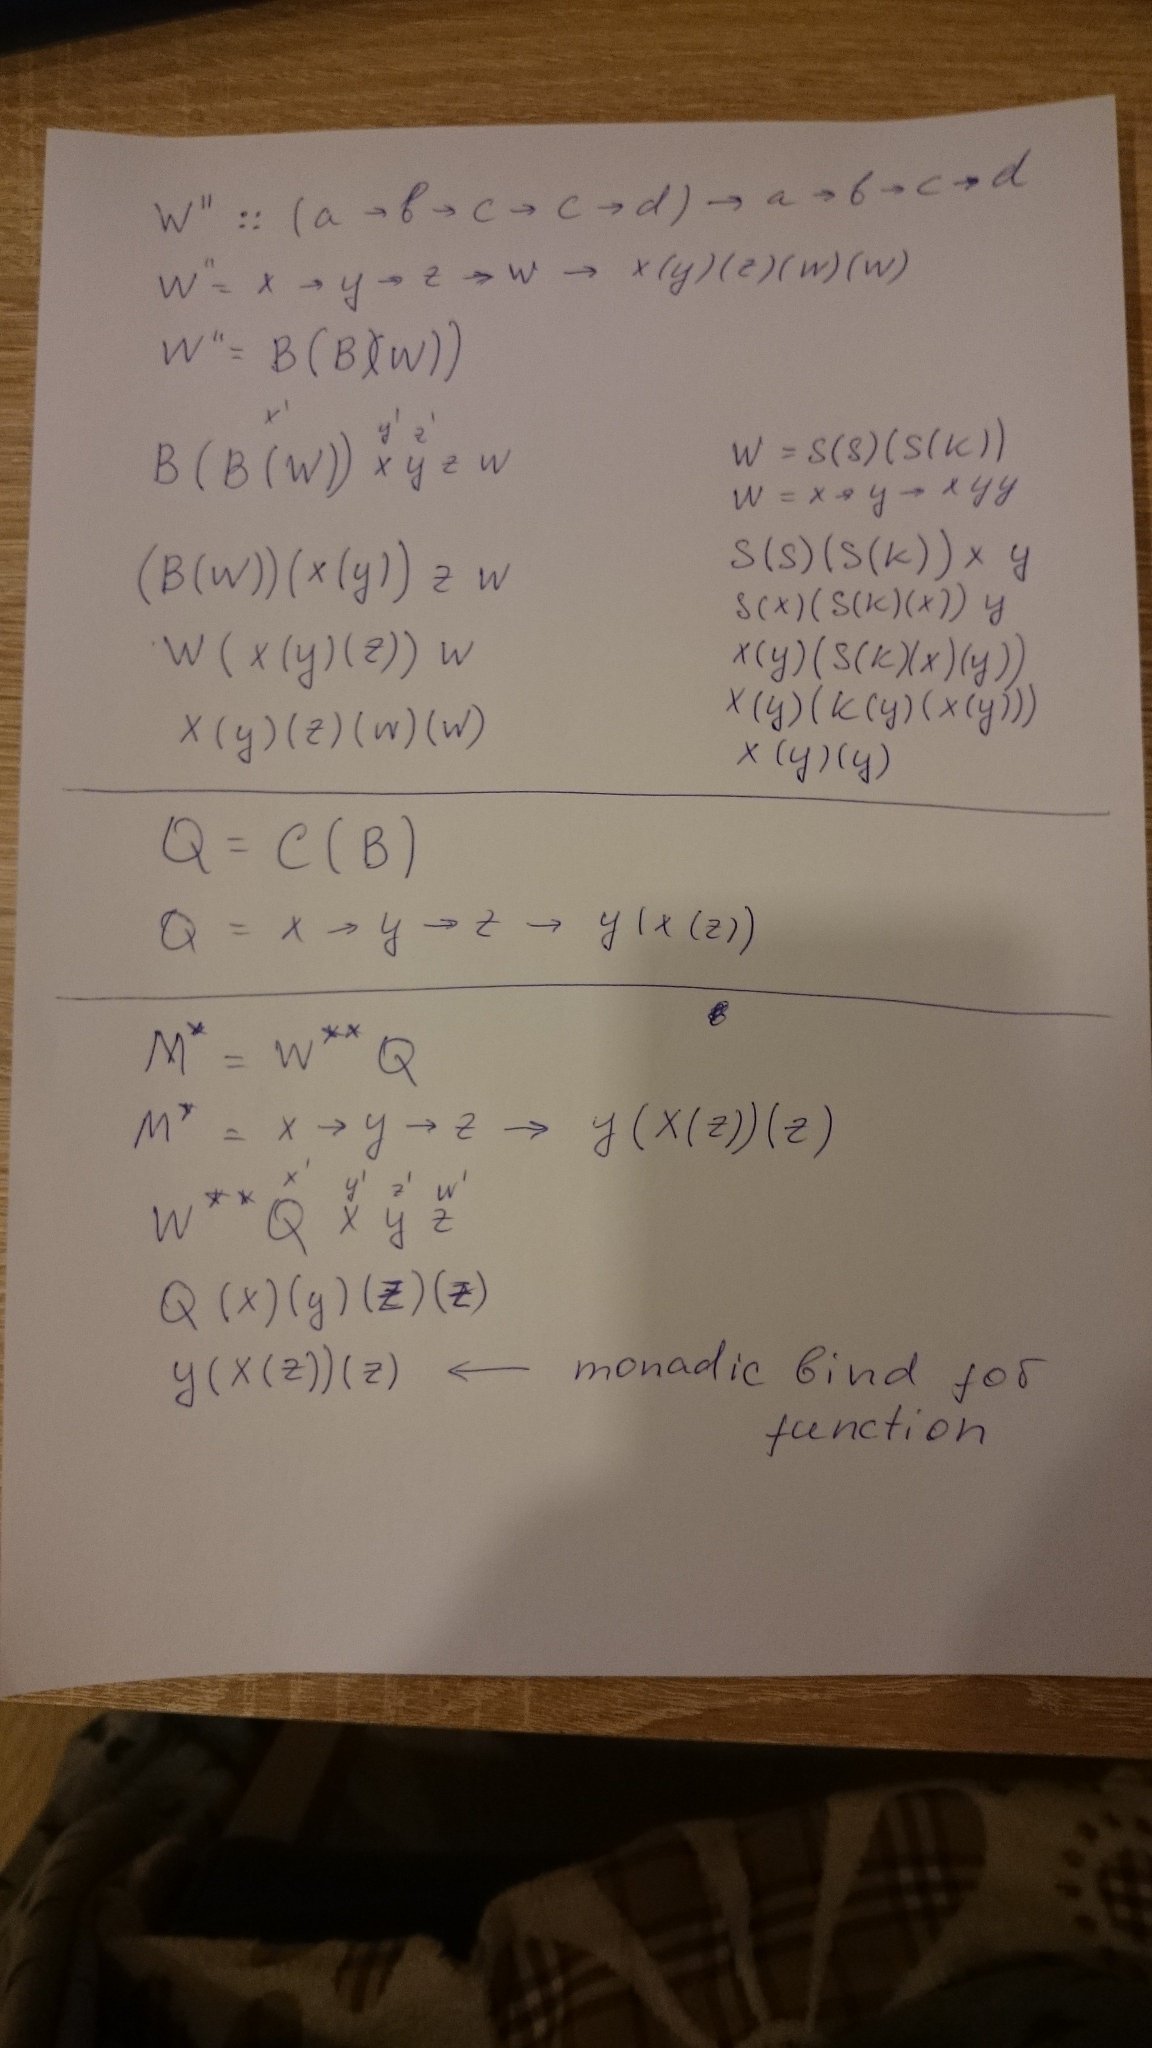 W" :: (a → b → c → c → d) → a → b → c → d
W" = x → y → z → w → x(y)(z)(w)(w)
W" = B(B(W))
x' y' z'
B(B(W)) x y z w
(B(W))(x(y)) z w
W(x(y)(z)) w
x(y)(z)(w)(w)
W = S(S)(S(K))
W = x → y → xyy
S(S)(S(K)) x y
S(x)(S(K)(x)) y
x(y)(S(K)(x)(y))
x(y)(K(y)(x(y)))
x(y)(y)
Q = C(B)
Q = x → y → z → y(x(z))
M* = W** Q
M* = x → y → z → y(x(z))(z)
x' y' z' w'
W** Q x y z
Q(x)(y)(z)(z)
y(x(z))(z) ← monadic bind for
function